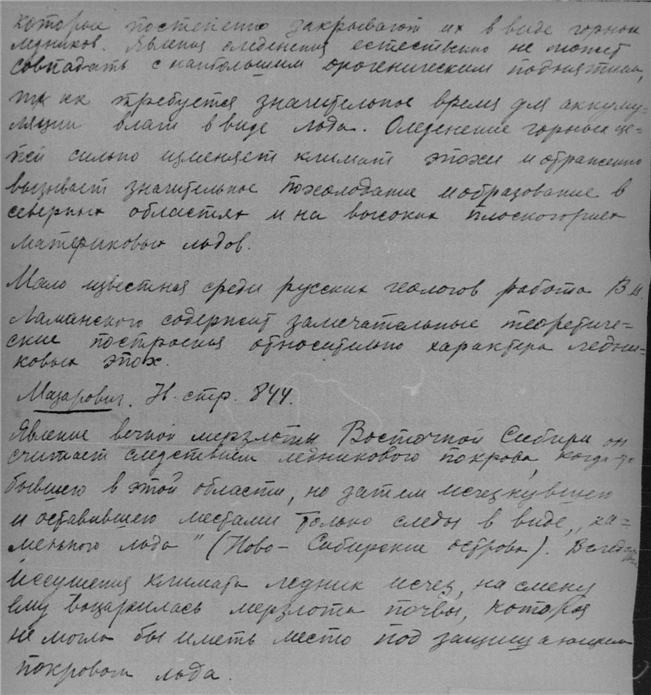 которые постепенно закрывают их в виде горных
ледников. Явления оледенения естественно не может
совпадать с наибольшим орогеническим поднятием,
так как требуется значительное время для аккуму-
ляции влаги в виде льда. Оледенение горных це-
пей сильно изменяет климат эпохи и отраженно
вызывает значительное похолодание и образование в
северных областях и на высоких плоскогориях
материковых льдов.
Мало известная среди русских геологов работа В.И.
Ламанского содержит замечательные теоретиче-
ские построения относительно характера ледни-
ковых эпох.
Мазарович. Н. стр. 844.
Явление вечной мерзлоты Восточной Сибири он
считает следствием ледникового покрова, когда-то
бывшего в этой области, но затем исчезнувшего
и оставившего местами только следы в виде „ка-
менного льда" (Ново-Сибирские острова). Вследствие
иссушения климата ледник исчез, на смену
ему воцарилась мерзлота почвы, которая
не могла бы иметь место под защищающим
покровом льда.